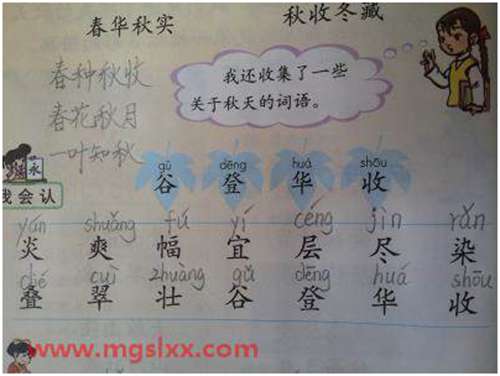 春华秋实 秋收冬藏
春种秋收
春花秋月
一叶知秋
我还收集了一些
关于秋天的词语。
gǔ dēng huá shōu
谷 登 华 收
我会认
yán shuǎng fú yí céng jìn rǎn
炎 爽 幅 宜 层 尽 染
dié cuì zhuàng gǔ dēng huá shōu
叠 翠 壮 谷 登 华 收
www.mgslxx.com